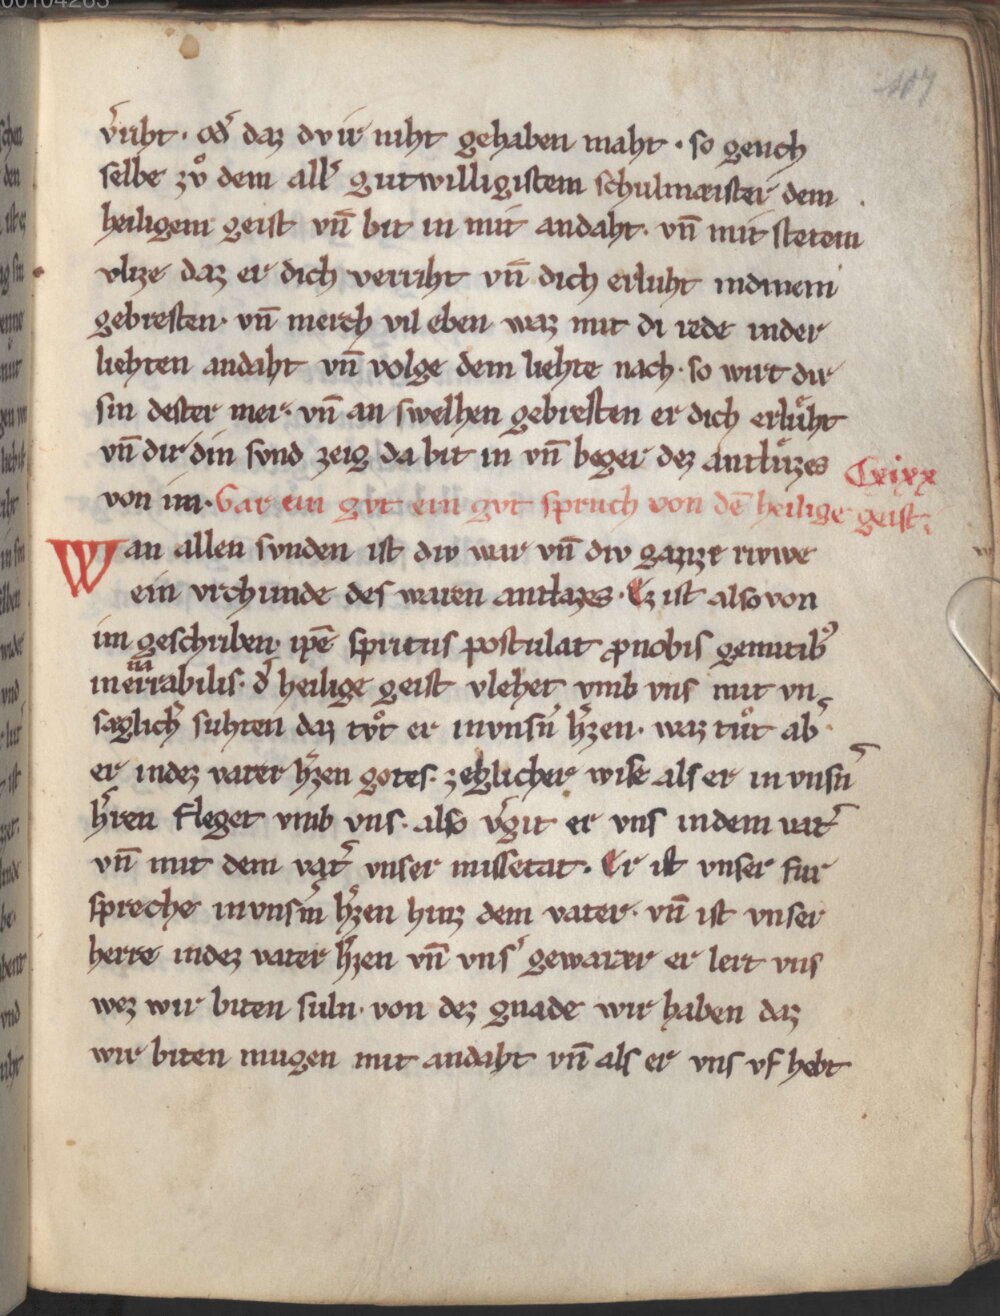 107
v͛riht · od͛ daz dv ir niht gehaben maht · so gench
selbe zv̊ dem all͛ gutwilligistem schulmæister dem
heiligem geist vn̄ bit in mit andaht · vn̄ mit stetem
vlize daz er dich verriht vn̄ dich erluht indinem
gebresten · vn̄ merch vil eben waz mit di rede inder
liehten andaht vn̄ volge dem liehte nach · so wirt dir
sin dester mer · vn̄ an swelhen gebresten er dich erlv̊ht
vn̄ dir din svnd zeig da bit in vn̄ beger dez antluzes
von im · Gar ein gvt ein gvt spruch von dē heilige geist
Cxixx
Wan allen svnden ist div war vn̄ div gazze rivwe
ein vrchunde des waren antlazes · Ez ist also von
im geschriben · ipē spiritus postulat ꝓnobis gemitib᷒
inerrabilis · d͛ heilige geist vlehet vmb vns mit vn
sæglich͛ suhten daz tv̊t er invnsn͛ h͛zen · waz tůt ab͛
er indez vater h͛zen gotes · zeglicher wise als er in vnsn͛
h͛ren fleget vmb vns · also v͛git er vns indem vat͛
vn̄ mit dem vat͛ vnser missetat · Er ist vnser fur
spreche invnsm͛ h͛zen hinz dem vater · vn̄ ist vnser
herre indez vater h͛zen vn̄ vns͛ gewærer er lert vns
wez wir biten suln · von dez gnade wir haben daz
wir biten mugen mit andaht vn̄ als er vns vf hebt